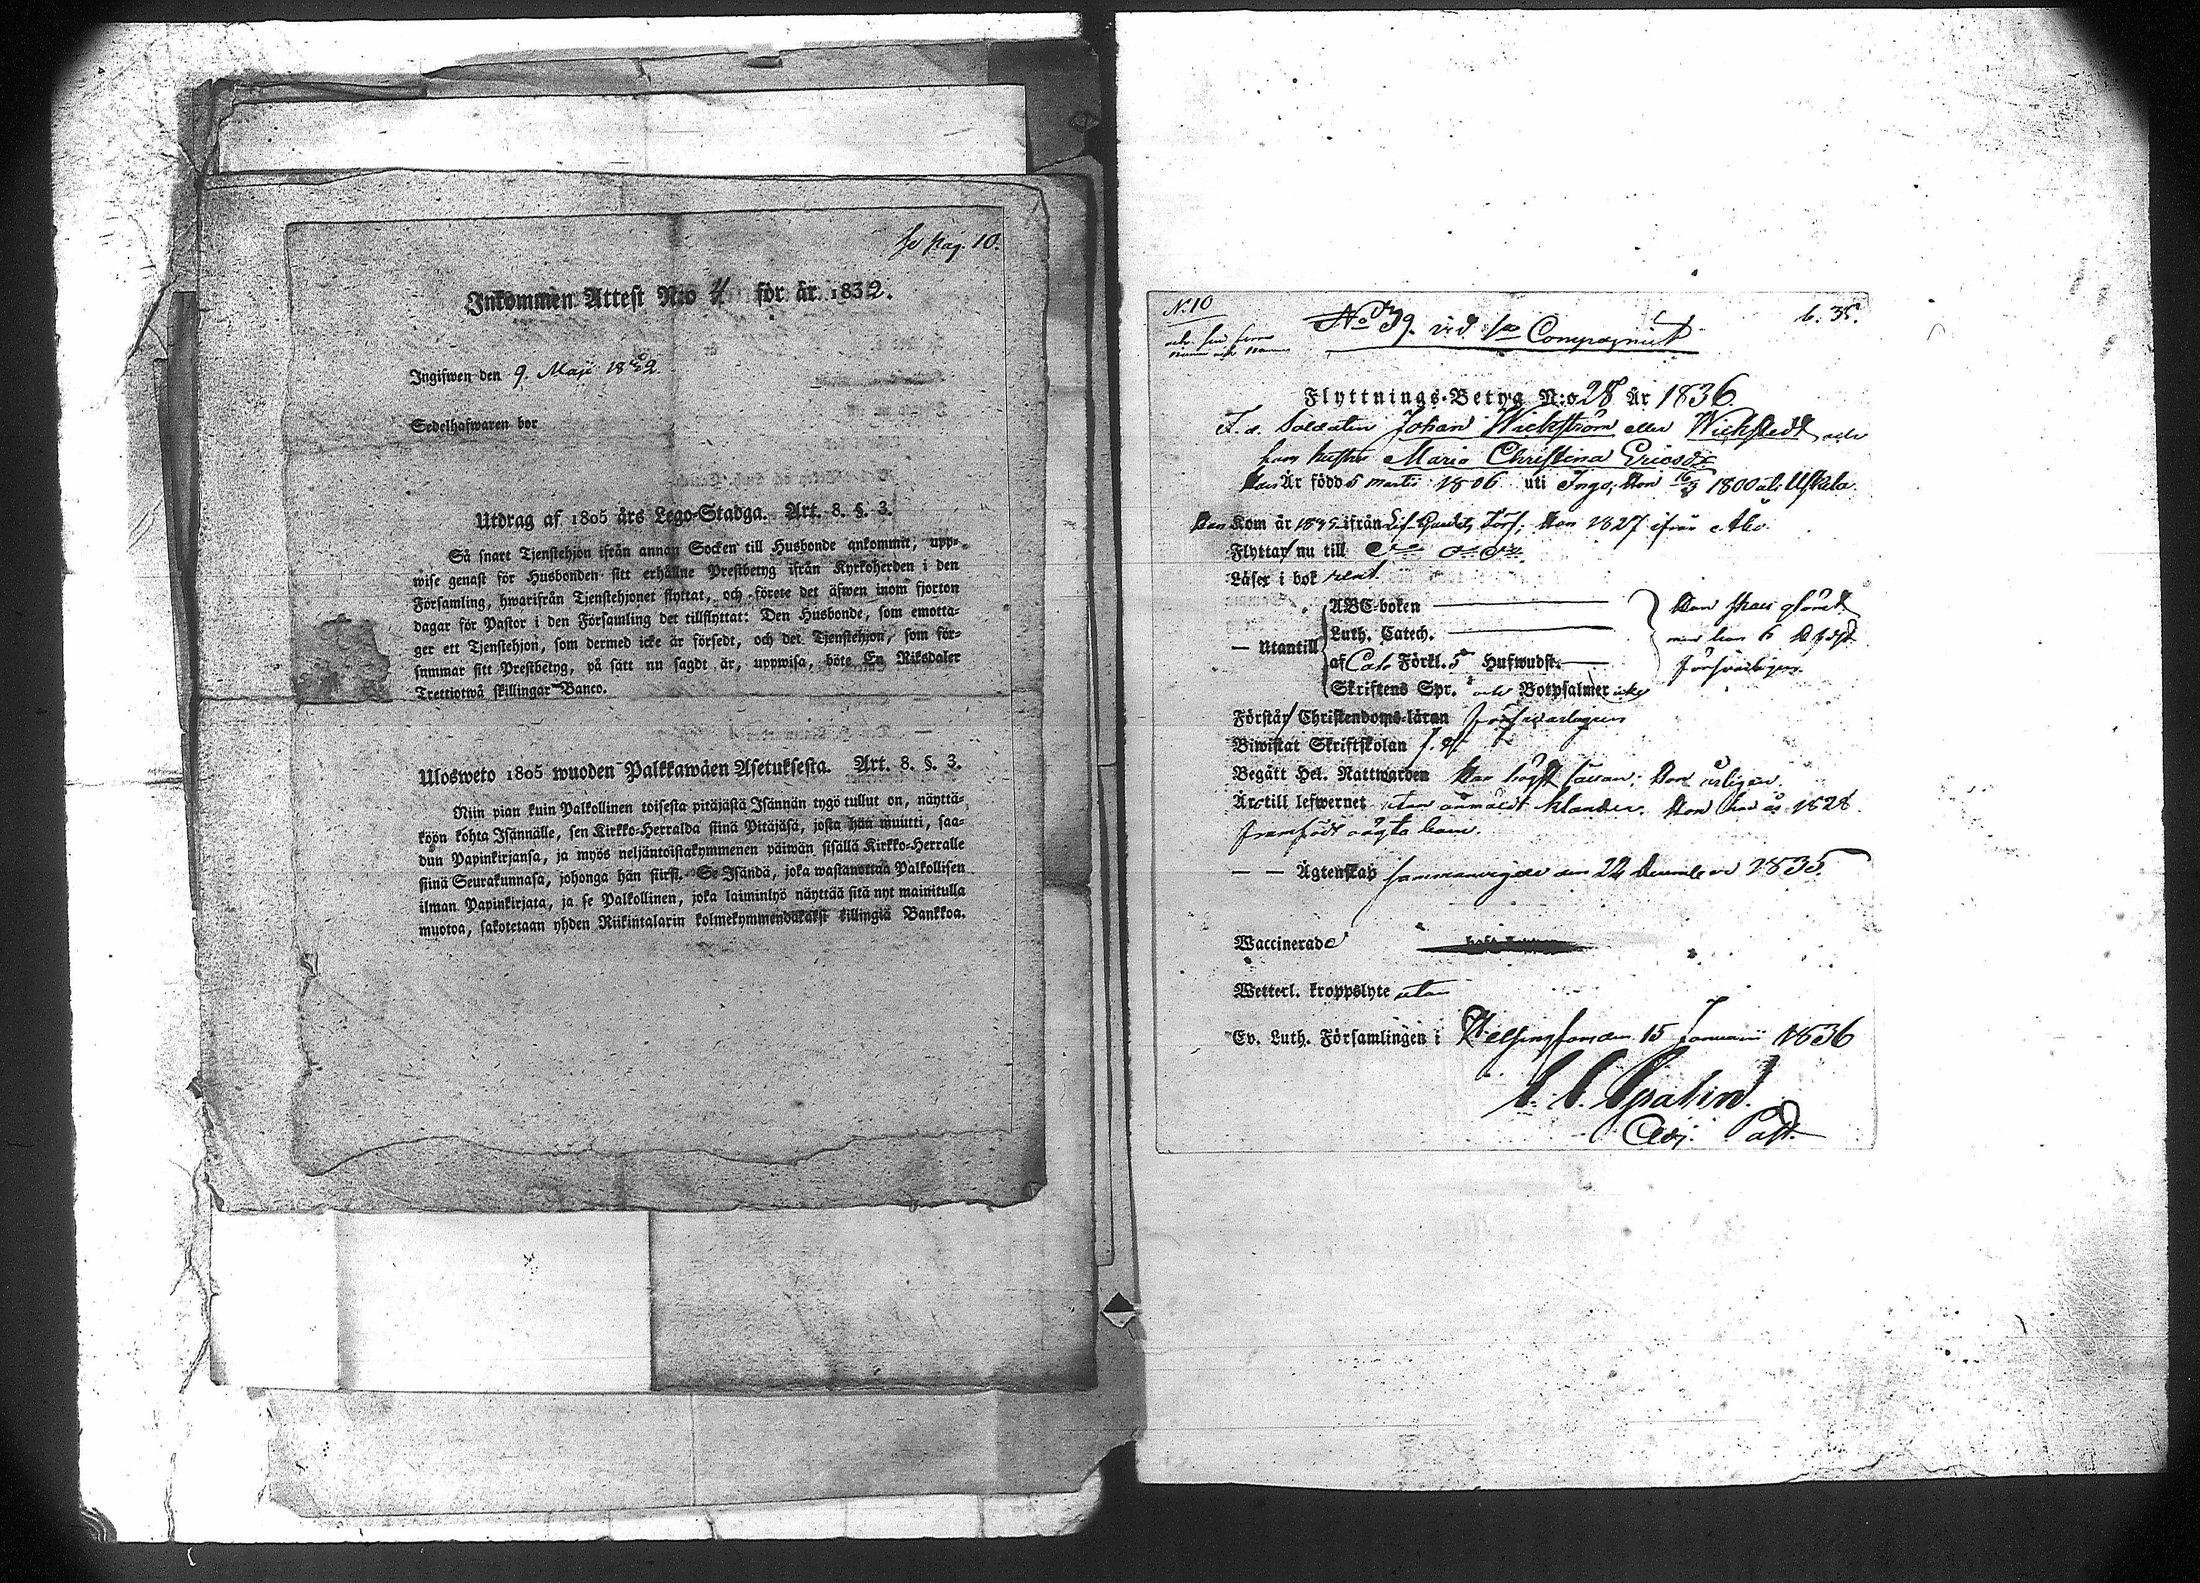 Se pag. 10.
Inkommen Attest N:o 4 för år 1832.
Ingifwen den 9. Maji 1832
Sedelhafwaren bor
Utdrag af 1805 års Lego-Stadga. Art. 8. §. 3.
Så snart Tjenstehjon ifrån annan Socken till Husbonde ankommit, upp-
wise genast för Husbonden sitt erhållne Prestbetyg ifrån Kyrkoherden i den
Församling, hwarifrån Tjenstehjonet flyttat, och förete det äfwen inom fjorton
dagar för Pastor i den Församling det tillflyttat: Den Husbonde, som emotta-
ger ett Tjenstehjon, som dermed icke är försedt, och det Tjenstehjon, som för-
summar sitt Prestbetyg, på sätt nu sagdt är, uppwisa, böte En Riksdaler
Trettiotwå skillingar Banco.
Ulosweto 1805 wuoden Palkkawäen Asetuksesta. Art. 8. §. 3.
Niin pian kuin Palkollinen toisesta pitäjästä Isännän tygö tullut on, näyttä-
köön kohta Isännälle, sen Kirkko-Herralda siinä Pitäjäsä, josta hän muutti, saa-
dun Papinkirjansa, ja myös neljäntoistakymmenen päiwän sisällä Kirkko-Herralle
siinä Seurakunnasa, johonga hän siirsi. Se Isändä, joka wastanottaa Palkollisen
ilman Papinkirjata, ja se Palkollinen, joka laiminlyö näyttää sitä nyt mainitulla
muotoa, sakotetaan yhden Riikintalarin kolmekymmendäkaksi killingiä Bankkoa.
N. 10
No 39. vid 1a Compagniet
b. 35.
Flyttnings-Betyg N:o 28 År 1836
F. d. Soldaten Johan Wickström eller Wickstedt och
hans hustru Maria Christina Ericsdr
Han Är född 5 martii 1806 uti Ingo, Hon 1800 uti Uskela
Han Kom år 1835 ifrån Lif Gardets Förs; Hon 1827 ifrån Åbo
Flytta nu till
Läser i bok rent
— Utantill
ABC-boken
Luth. Catech.
af Cat. Förkl. 5 Hufwudst.
Skriftens Spr. och Botpsalmer icke
Hon
försvarligen
Förstår Christendoms-läran försvarligen
Biwistat Skriftskolan
Begått Hel. Nattwarden Han högst sällan: Hon årligen
Är till lefwernet utan anmäldt klander. Hon har år 1828
framfödt oägta barn
— — Ägtenskap sammanvigde den 22 December 1835
Waccinerade
Wetterl. kroppslyte utan
Ev. Luth. Församlingen i Helsingfors den 15 Januarii 1836
Adj. Past.